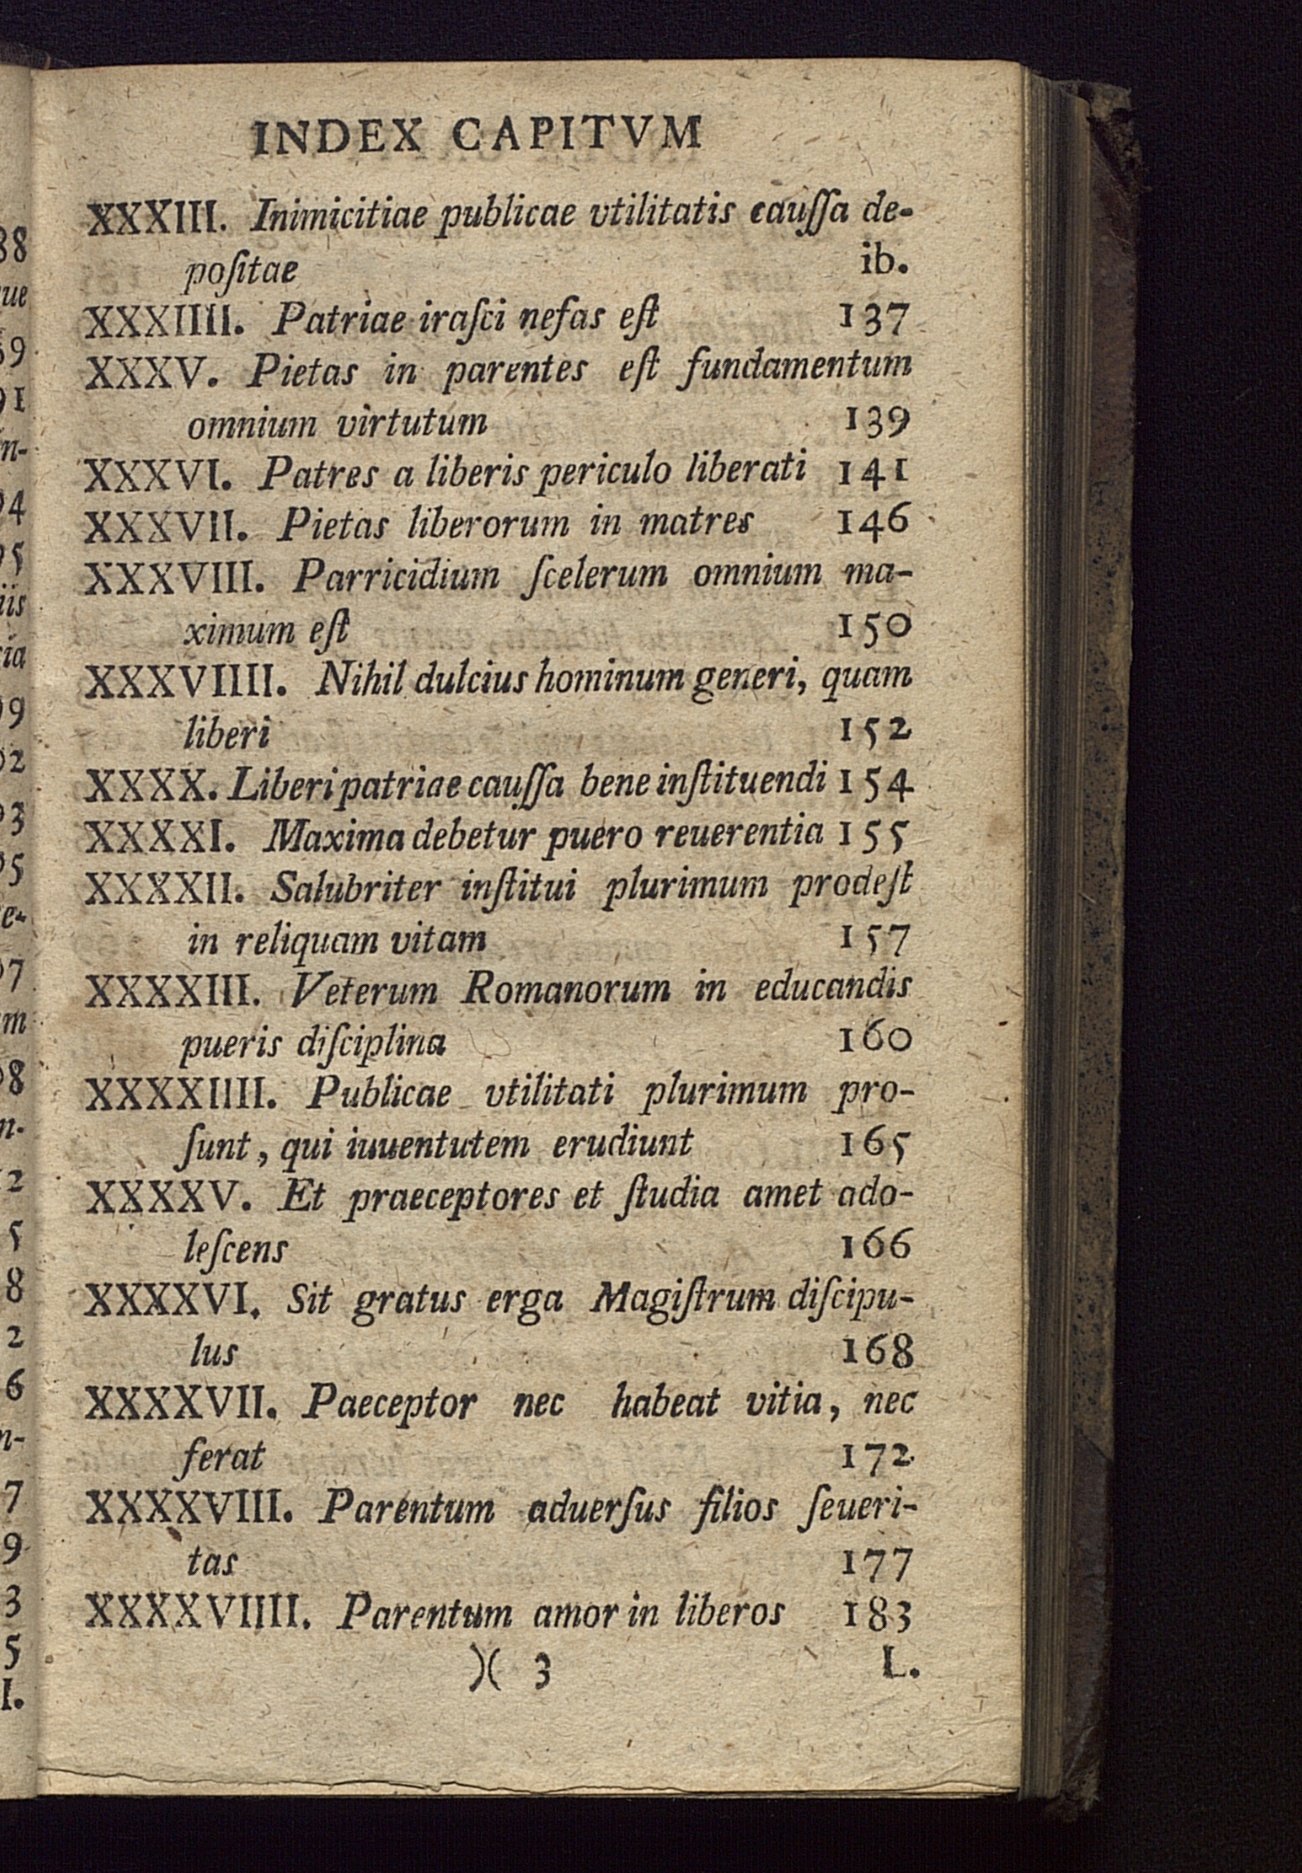 INDEX CAPITVM
XXXIII. Inimicitiae publicae vtilitatis cauſſa de-
poſitae ib.
XXXIIII. Patriae iraſci nefas eſt 137
XXXV. Pietas in parentes eſt fundamentum
omnium virtutum 139
XXXVI. Patres a liberis periculo liberati 141
XXXVII. Pietas liberorum in matres 146
XXXVIII. Parricidium ſcelerum omnium ma-
ximum eſt 150
XXXVIIII. Nihil dulcius hominum generi, quam
liberi 152
XXXX. Liberi patriae cauſſa bene inſtituendi 154
XXXXI. Maxima debetur puero reuerentia 155
XXXXII. Salubriter inſtitui plurimum prodeſt
in reliquam vitam 157
XXXXIII. Veterum Romanorum in educandis
pueris diſciplina 160
XXXXIIII. Publicae vtilitati plurimum pro-
ſunt, qui iuuentutem erudiunt 165
XXXXV. Et praeceptores et ſtudia amet ado-
leſcens 166
XXXXVI. Sit gratus erga Magiſtrum diſcipu-
lus 168
XXXXVII. Paeceptor nec habeat vitia, nec
ferat 172
XXXXVIII. Parentum aduerſus filios ſeueri-
tas 177
XXXXVIIII. Parentum amor in liberos 183
)( 3 L.